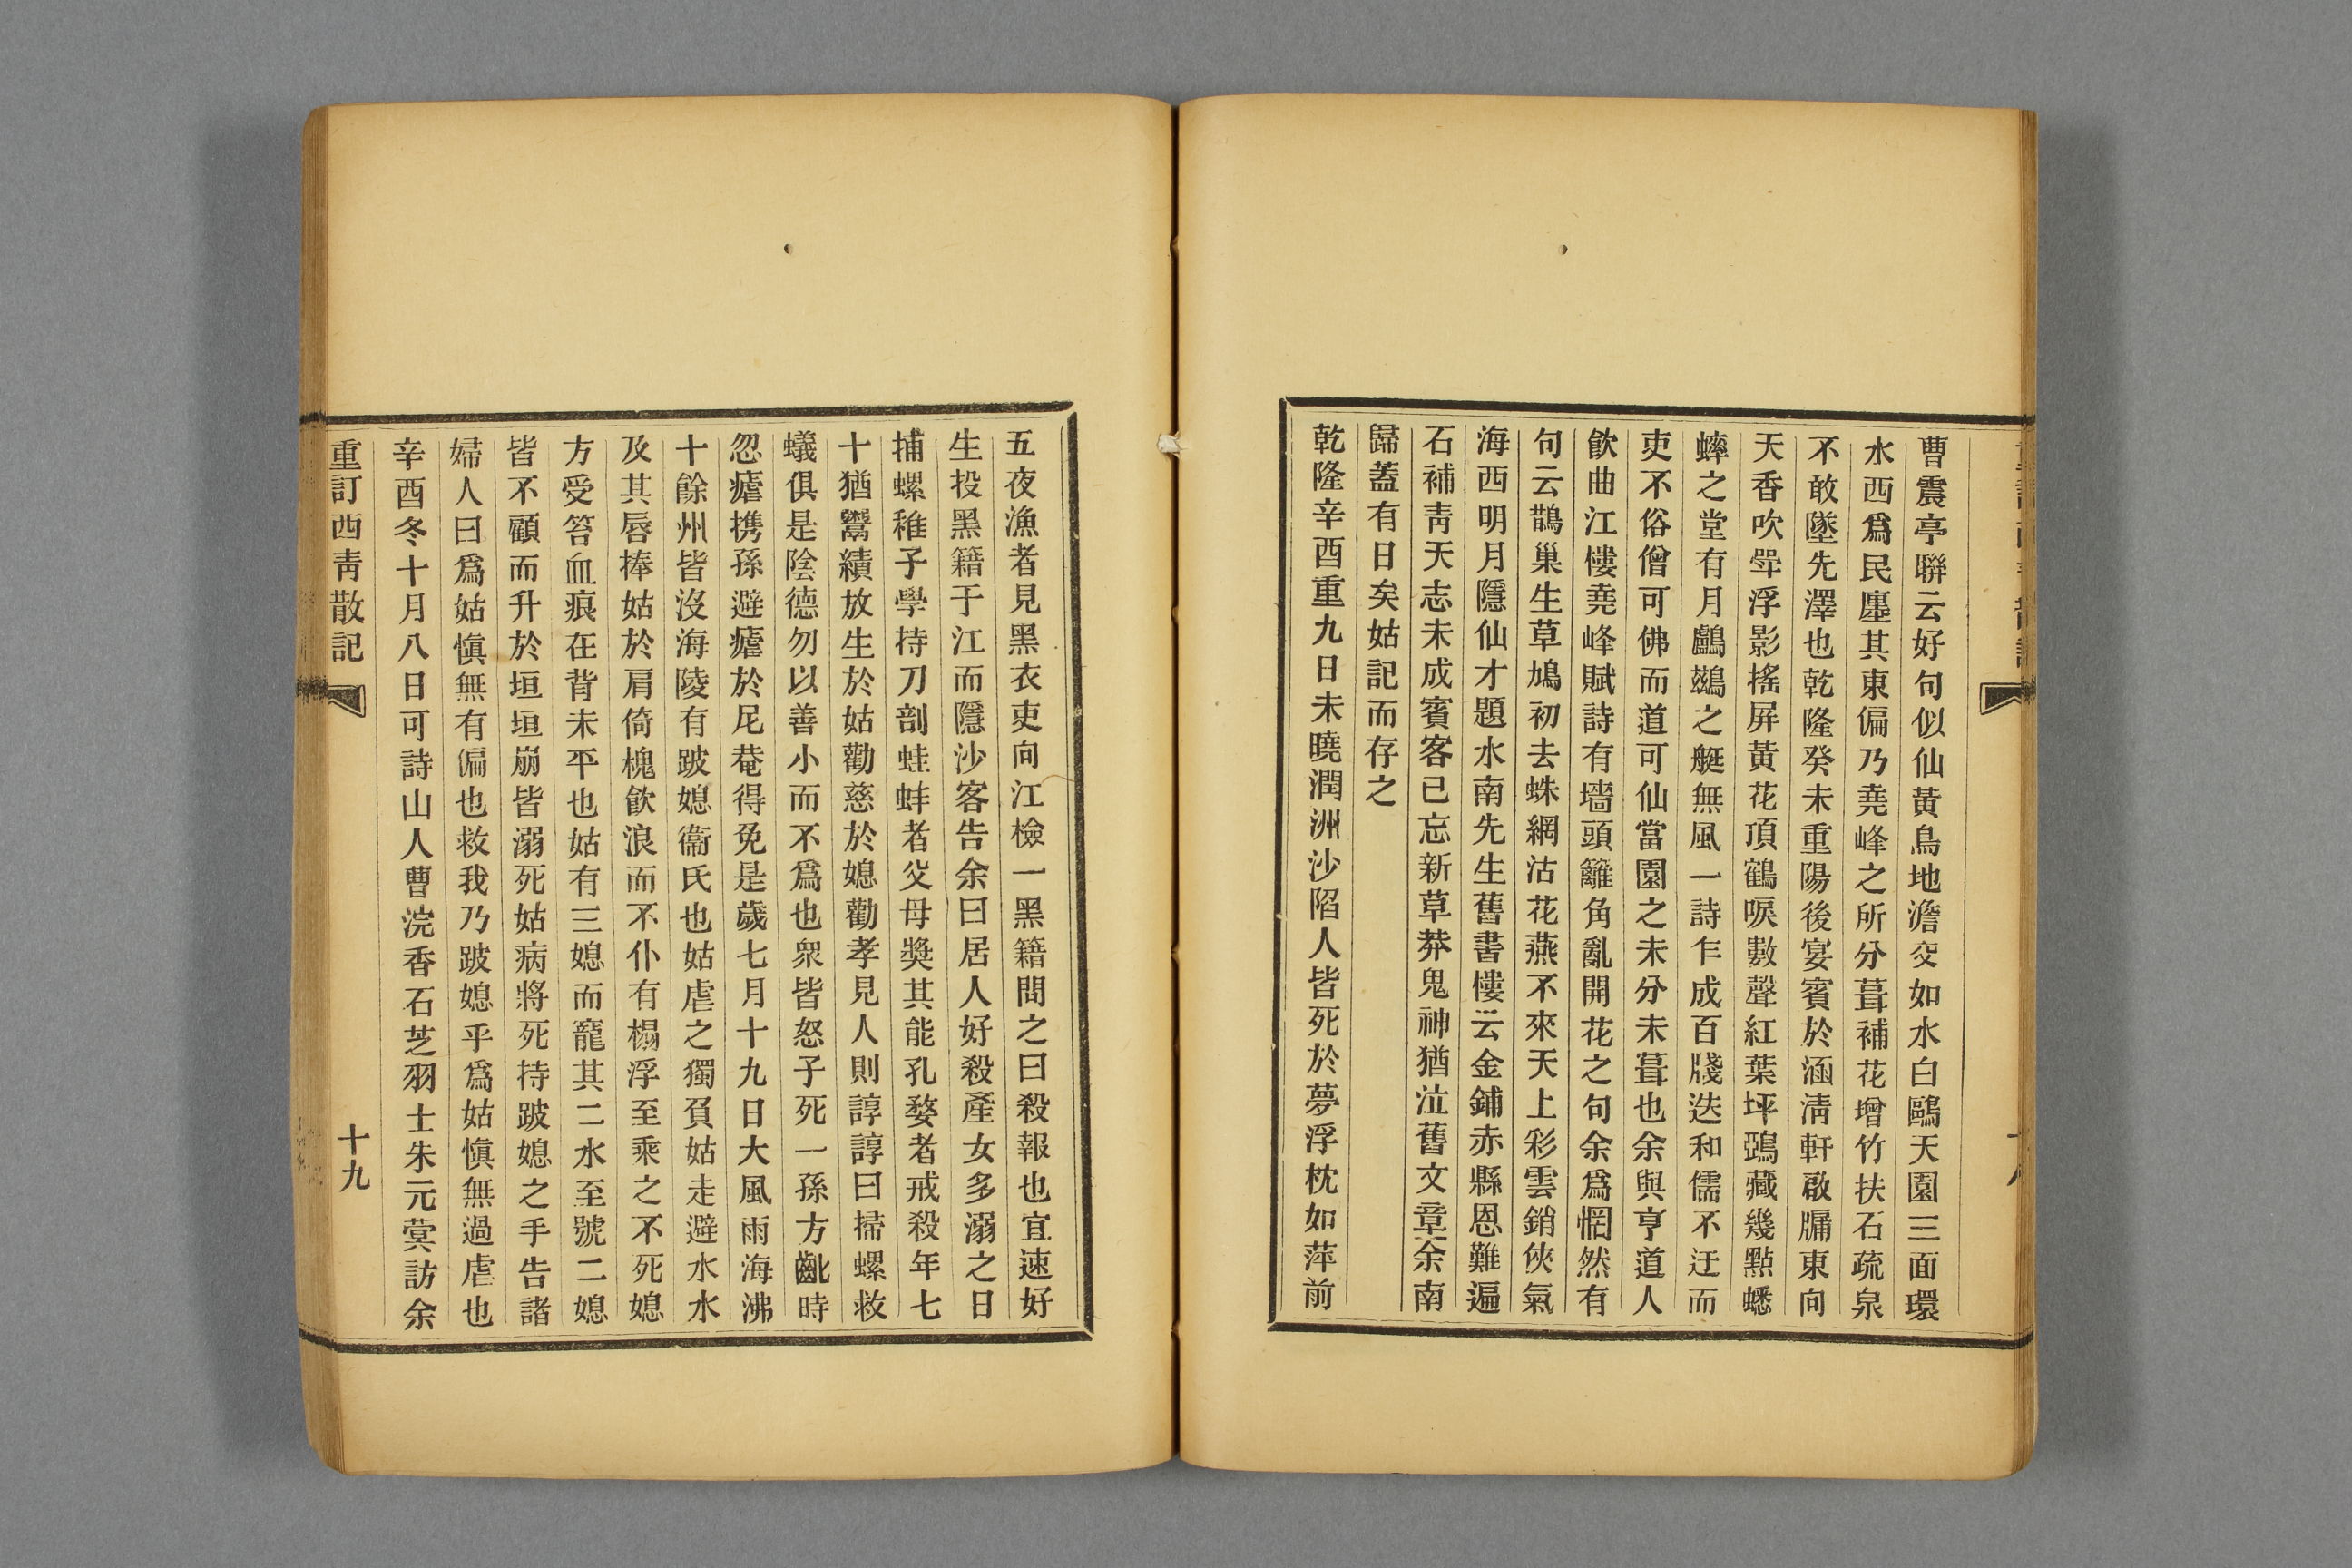 曹震亭聯云好句似仙黃鳥地澹交如水白鷗天園三面環
水西爲民廛其東偏乃堯峰之所分葺補花增竹扶石疏泉
不敢墜先澤也乾隆癸未重陽後宴賓於涵淸軒啟牖東向
天香吹斝浮影搖屏黃花頂鶴唳數聲紅葉坪鵶藏幾點蟋
蟀之堂有月鸕鷀之艇無風一詩乍成百牋迭和儒不迂而
吏不俗僧可佛而道可仙當園之未分未葺也余與亨道人
飮曲江樓堯峰賦詩有墻頭籬角亂開花之句余爲惘然有
句云鵲巢生草鳩初去蛛網沽花燕不來天上彩雲銷俠氣
海西明月隱仙才題水南先生舊書樓云金鋪赤縣恩難遍
石補靑天志未成賓客已忘新草莽鬼神猶泣舊文章余南
歸蓋有日矣姑記而存之
乾隆辛酉重九日未曉潤洲沙陷人皆死於夢浮枕如萍前
五夜漁者見黑衣吏向江檢一黑籍問之曰殺報也宜速好
生投黑籍于江而隱沙客告余曰居人好殺產女多溺之日
捕螺稚子學持刀剖蛙蚌者父母奬其能孔婺者戒殺年七
十猶鬻績放生於姑勸慈於媳勸孝見人則諄諄曰掃螺救
蟻俱是陰德勿以善小而不爲也衆皆怒子死一孫方齔時
忽瘧携孫避瘧於尼菴得免是歲七月十九日大風雨海沸
十餘州皆沒海陵有跛媳衞氏也姑虐之獨負姑走避水水
及其唇捧姑於肩倚槐飮浪而不仆有榻浮至乘之不死媳
方受笞血痕在背未平也姑有三媳而寵其二水至號二媳
皆不顧而升於垣垣崩皆溺死姑病將死持跛媳之手告諸
婦人曰爲姑愼無有偏也救我乃跛媳乎爲姑愼無過虐也
辛酉冬十月八日可詩山人曹浣香石芝羽士朱元蓂訪余
重訂西靑散記
十九